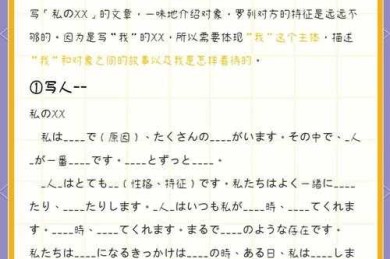 写「私のXX」的文章，一味地介绍对象，罗列对方的特征是远远不
够的。因为是写“我”的XX，所以需要体现“我”这个主体，描述
“我”和对象之间的故事以及我是怎样看待的。
①写人--
私のXX
私は____で（原因）、たくさんの____がいます。その中で、_人
_が一番____です。____とずっと____。
_人_はとても__（性格、特征）です。私たちはよく一緒に____
たり、____たりします。_人_はいつも私が____時、____てくれま
す。____時、____てくれます。まるで____のような存在です。
私たちは____になるきっかけは____の時、ある日、私は____しま